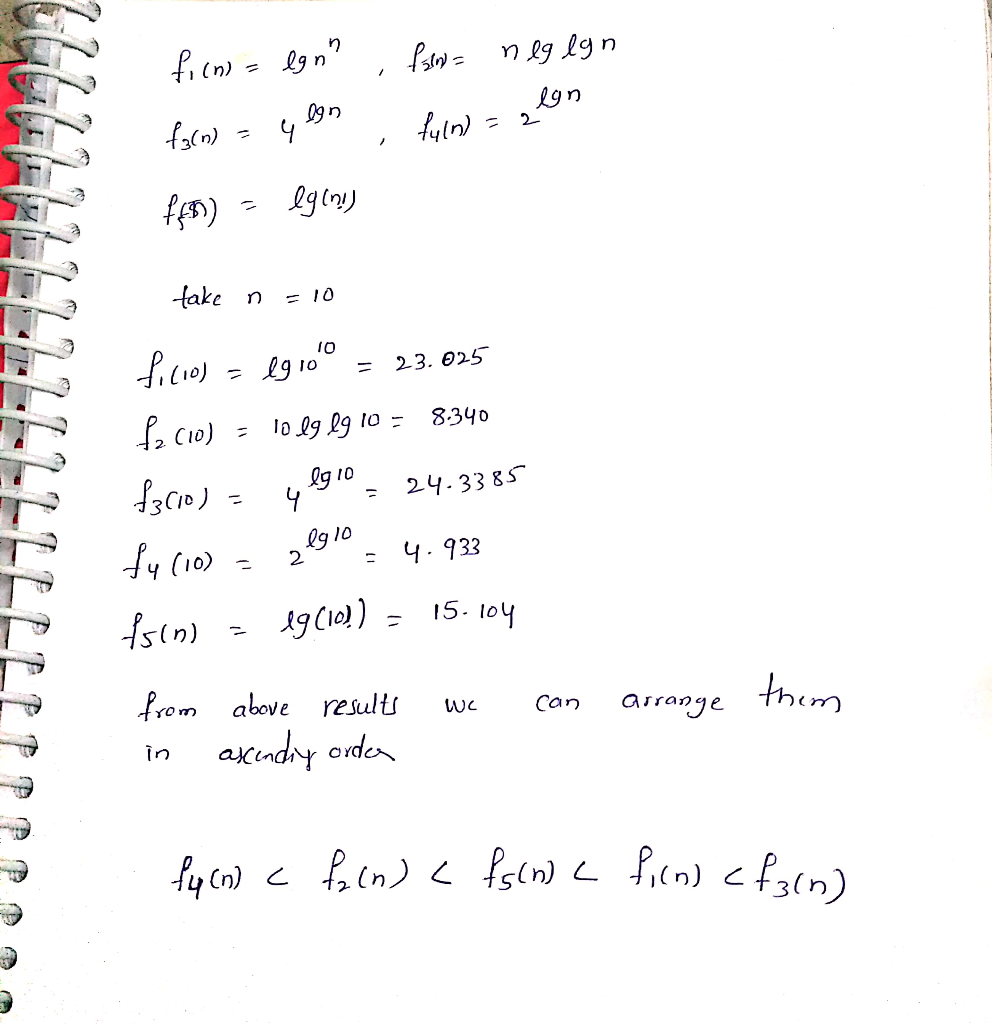 f₁(n) = lg nⁿ , f₂(n) = n lg lg n
f₃(n) = 4^lg n , f₄(n) = 2^lg n
f₅(n) = lg(n!)
take n = 10
f₁(10) = lg 10¹⁰ = 23.025
f₂(10) = 10 lg lg 10 = 8.340
f₃(10) = 4^lg 10 = 24.3385
f₄(10) = 2^lg 10 = 4.933
f₅(n) = lg(10!) = 15.104
from above results we can arrange them
in ascending order
f₄(n) < f₂(n) < f₅(n) < f₁(n) < f₃(n)